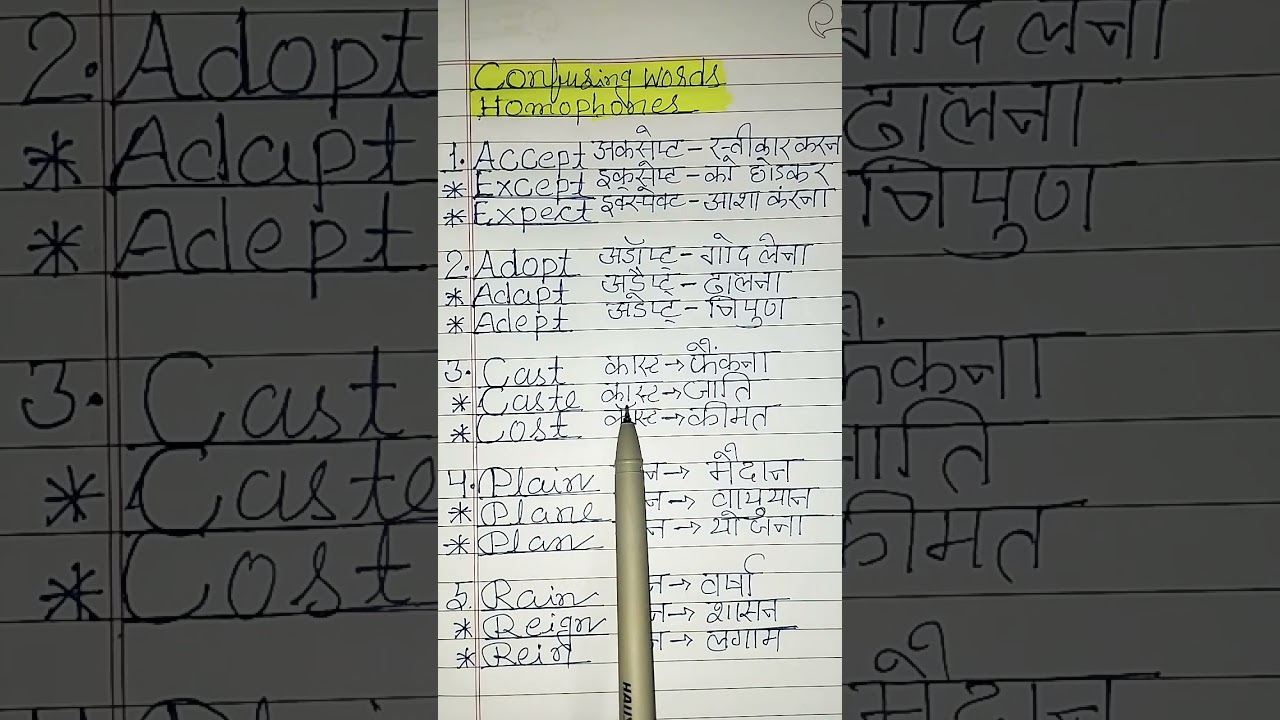 Confusing words
Homophones
1. Accept अकसेप्ट - स्वीकार करन
* Except इक्सेप्ट - को छोडकर
* Expect इक्स्पेक्ट - आशा करना
2. Adopt अडॉप्ट् - गोद लेना
* Adapt अडैप्ट् - ढालना
* Adept अडेप्ट् - निपुण
3. Cast कास्ट → फैंकना
* Caste कास्ट → जाति
* Cost कॉस्ट → कीमत
4. Plain न → मैदान
* Plane न → वायुयान
* Plan न → योजना
5. Rain न → वर्षा
* Reign न → शासन
* Rein न → लगाम